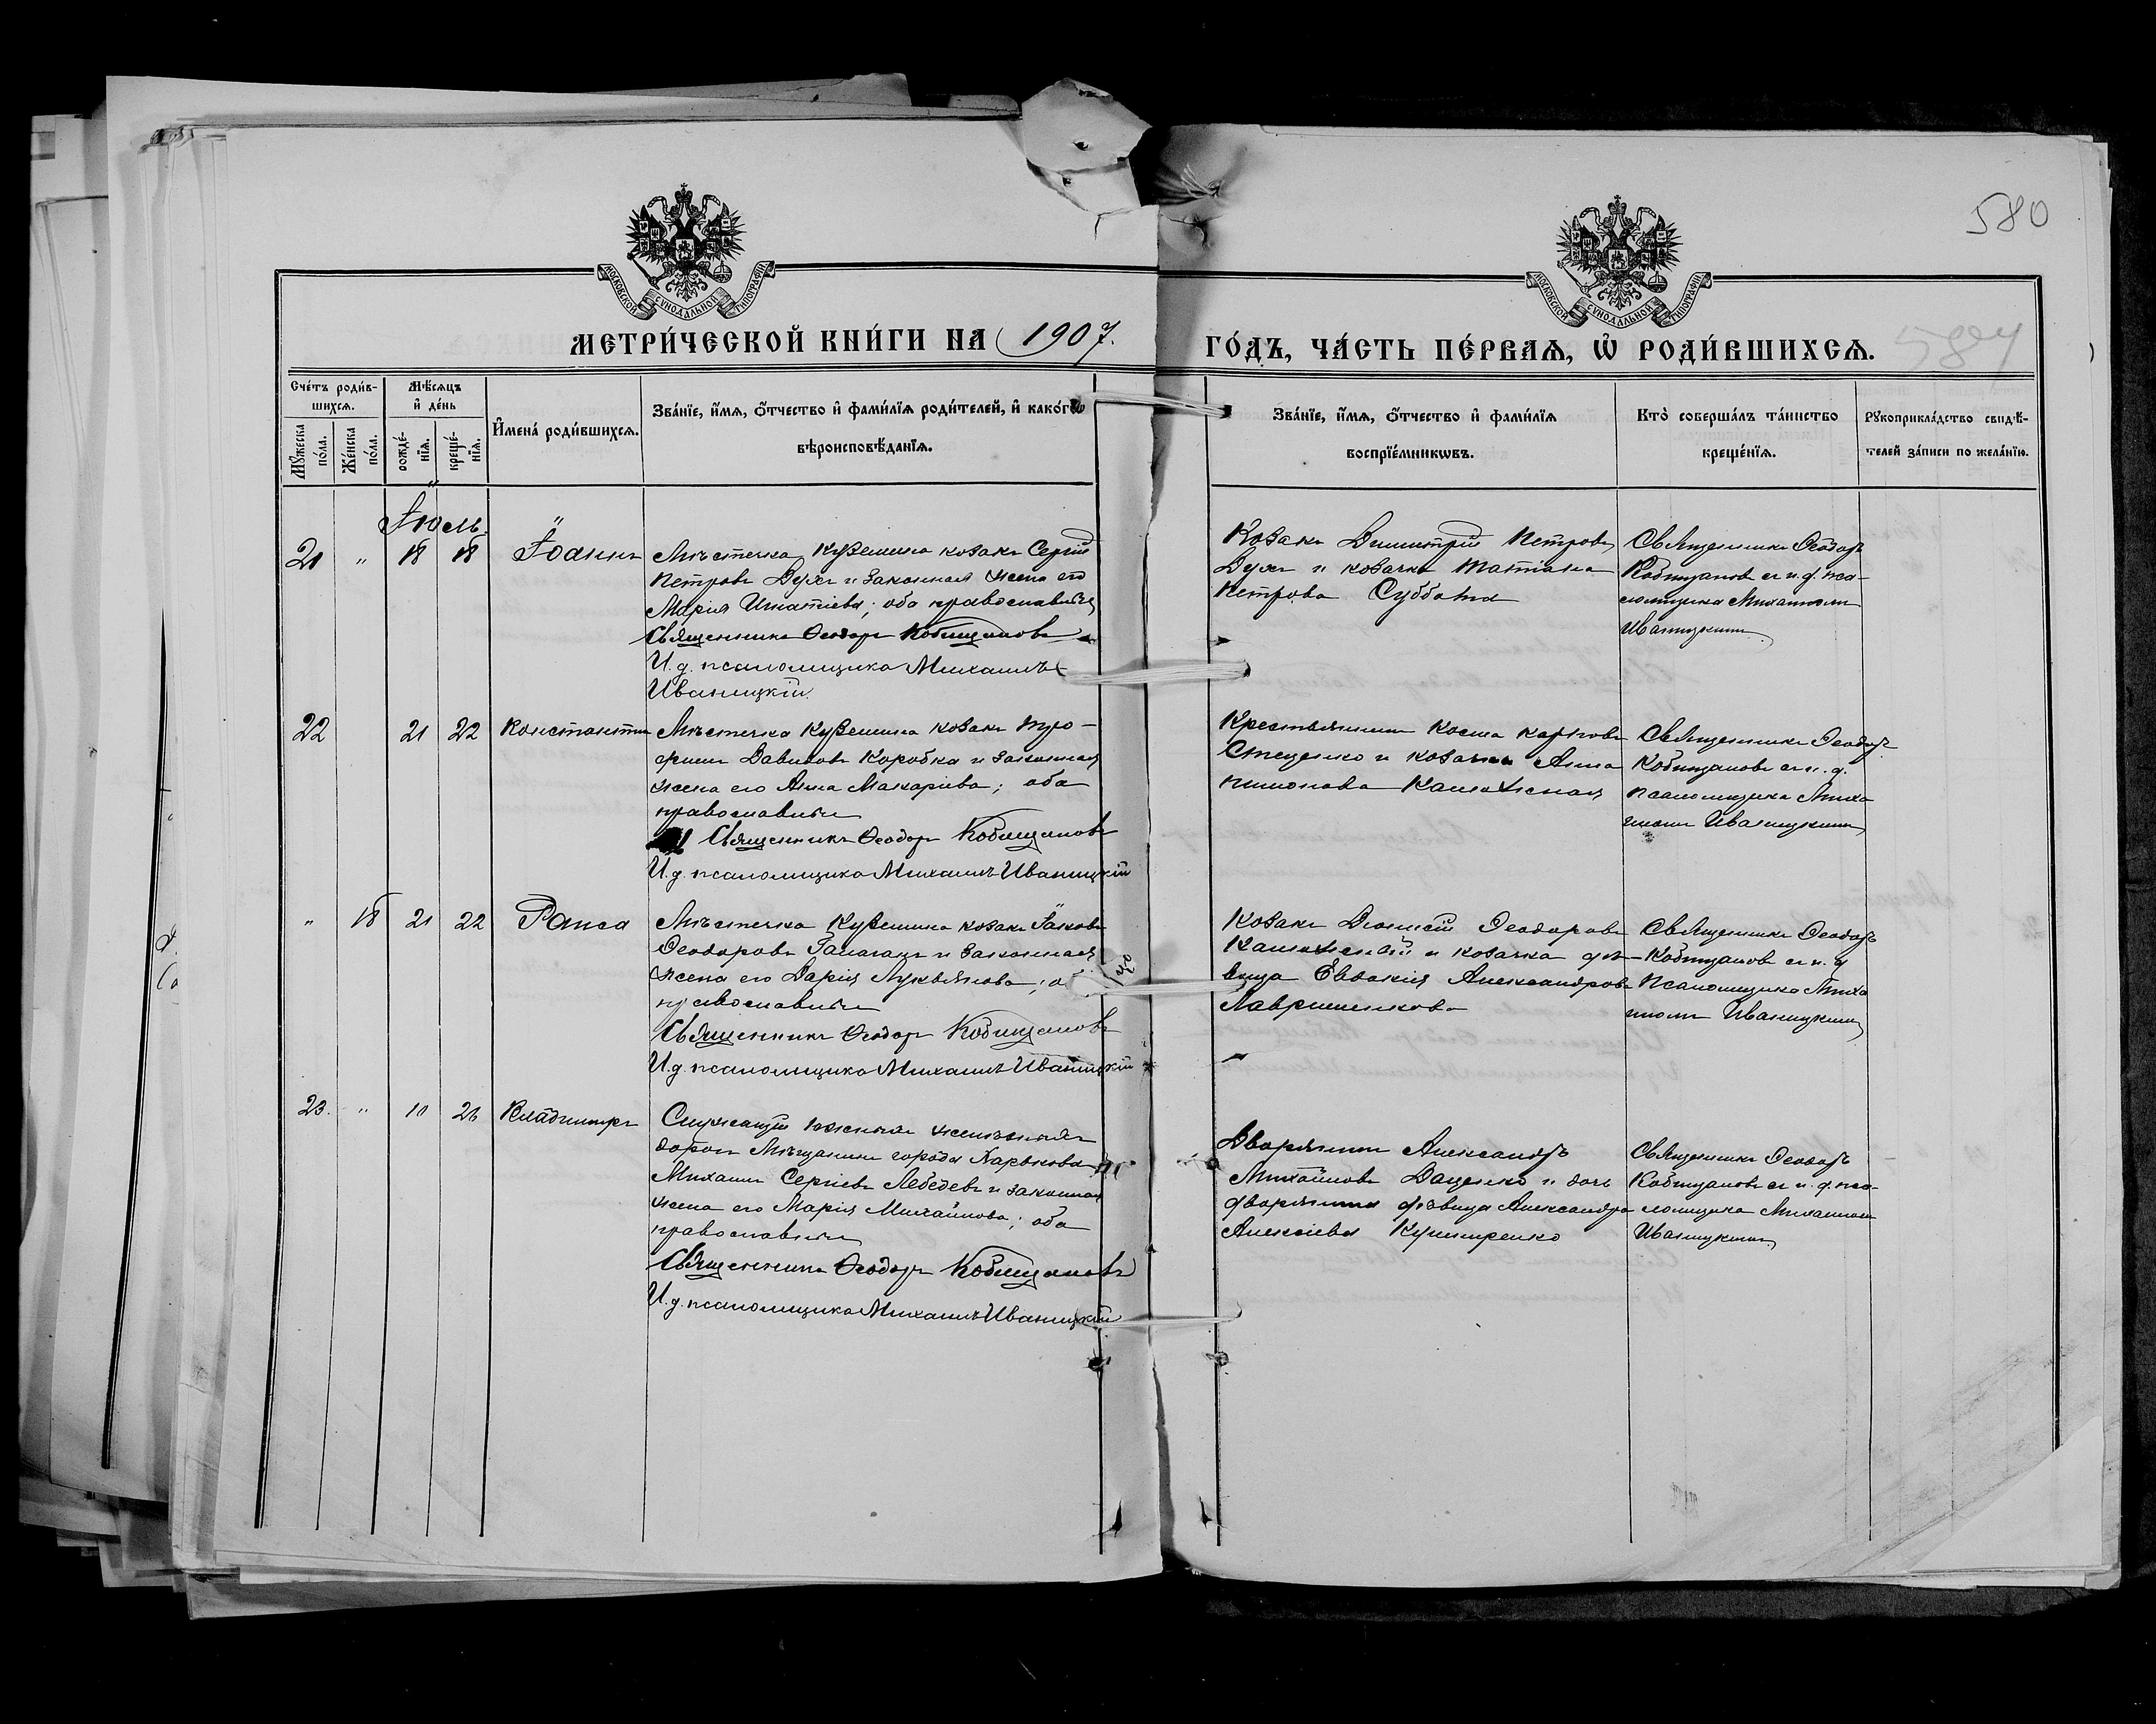 580
МОСКОВСКОЙ СУНОДАЛЬНОЙ ТИПОГРАФІИ
МОСКОВСКОЙ СУНОДАЛЬНОЙ ТИПОГРАФІИ
МЕТРИ́ЧЕСКОЙ КНИ́ГИ НА 1907.
ГО́ДЪ, ЧА́СТЬ ПЕ́РВАѦ, Ѡ҆ РОДИ́ВШИХСѦ.
587
Сче́тъ роди́в-
шихсѧ.
Мѣ́сѧцъ
и҆ де́нь
Мꙋ́жеска по́ла.
Же́нска по́ла.
рожде́-
нїѧ.
креще́-
нїѧ.
И҆мена̀ роди́вшихсѧ.
Зва́нїе, и҆́мѧ, ѻ҆́тчество и҆ фами́лїѧ роди́телей, и҆ како́гѡ
вѣроисповѣ́данїѧ.
Зва́нїе, и҆́мѧ, ѻ҆́тчество и҆ фами́лїѧ
воспрїе́мникѡвъ.
Кто̀ соверша́лъ та́инство
креще́нїѧ.
Рꙋкоприкла́дство свидѣ́-
телей за́писи по жела́нїю.
Іюль.
21 " 18 18 Іоаннъ
Мѣстечка Куземина козакъ Сергій
Петровъ Духъ и законная жена его
Марія Игнатіева; оба православные
Священникъ Ѳеодоръ Кобищановъ
И.д. псаломщика Михаилъ
Иваницкій.
Козакъ Димитрій Петровъ
Духъ и козачка Татіана
Петрова Суббота
Священникъ Ѳеодоръ
Кобищановъ съ и.д. пса-
ломщика Михаиломъ
Иваницкимъ
22 21 22 Константинъ
Мѣстечка Куземина козакъ Тро-
фимъ Давидовъ Коробка и законная
жена его Анна Макаріева; оба
православные
Священникъ Ѳеодоръ Кобищановъ
И.д. псаломщика Михаилъ Иваницкій
Крестьянинъ Косма Карповъ
Стеценко и козачка Анна
Калюжная
Священникъ Ѳеодоръ
Кобищановъ съ и.д.
псаломщика Миха
иломъ Иваницкимъ
" 18 21 22 Раиса
Мѣстечка Куземина козакъ Іаковъ
Ѳеодоровъ Галаганъ и законная
жена его Дарія Лукьянова; о
православные
Священникъ Ѳеодоръ Кобищановъ
И.д. псаломщика Михаилъ Иваницкій
Козакъ Діонисій Ѳеодоровъ
Калюжный и козачка дѣ-
вица Евдокія Александрова
Лавриненкова
Священникъ Ѳеодоръ
Кобищановъ съ и.д
псаломщика Миха
иломъ Иваницкимъ
23. " 10 26 Владимиръ
Служащій южныхъ желѣзныхъ
дорогъ Мѣщанинъ города Харькова
Михаилъ Сергіевъ Лебедевъ и законная
жена его Марія Михайлова; оба
православные
Священникъ Ѳеодоръ Кобищановъ
И.д. псаломщика Михаилъ Иваницкій
Дворянинъ Александръ
Михайловъ Даценко и дочь
дворянина дѣвица Александра
Алексіева
Священникъ Ѳеодоръ
Кобищановъ съ и.д. пса-
ломщика Михаиломъ
Иваницкимъ